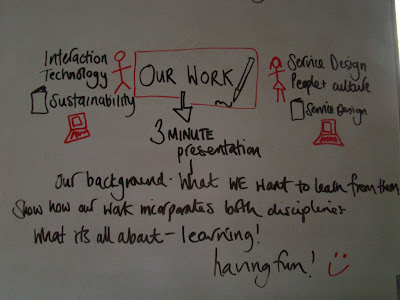 Interaction
Technology
Sustainability
OUR WORK
Service Design
People + culture
Service Design
3 MINUTE
presentation
Our background. What WE want to learn from them
Show how our work incorporates both disciplines.
What its all about - learning!
having fun!